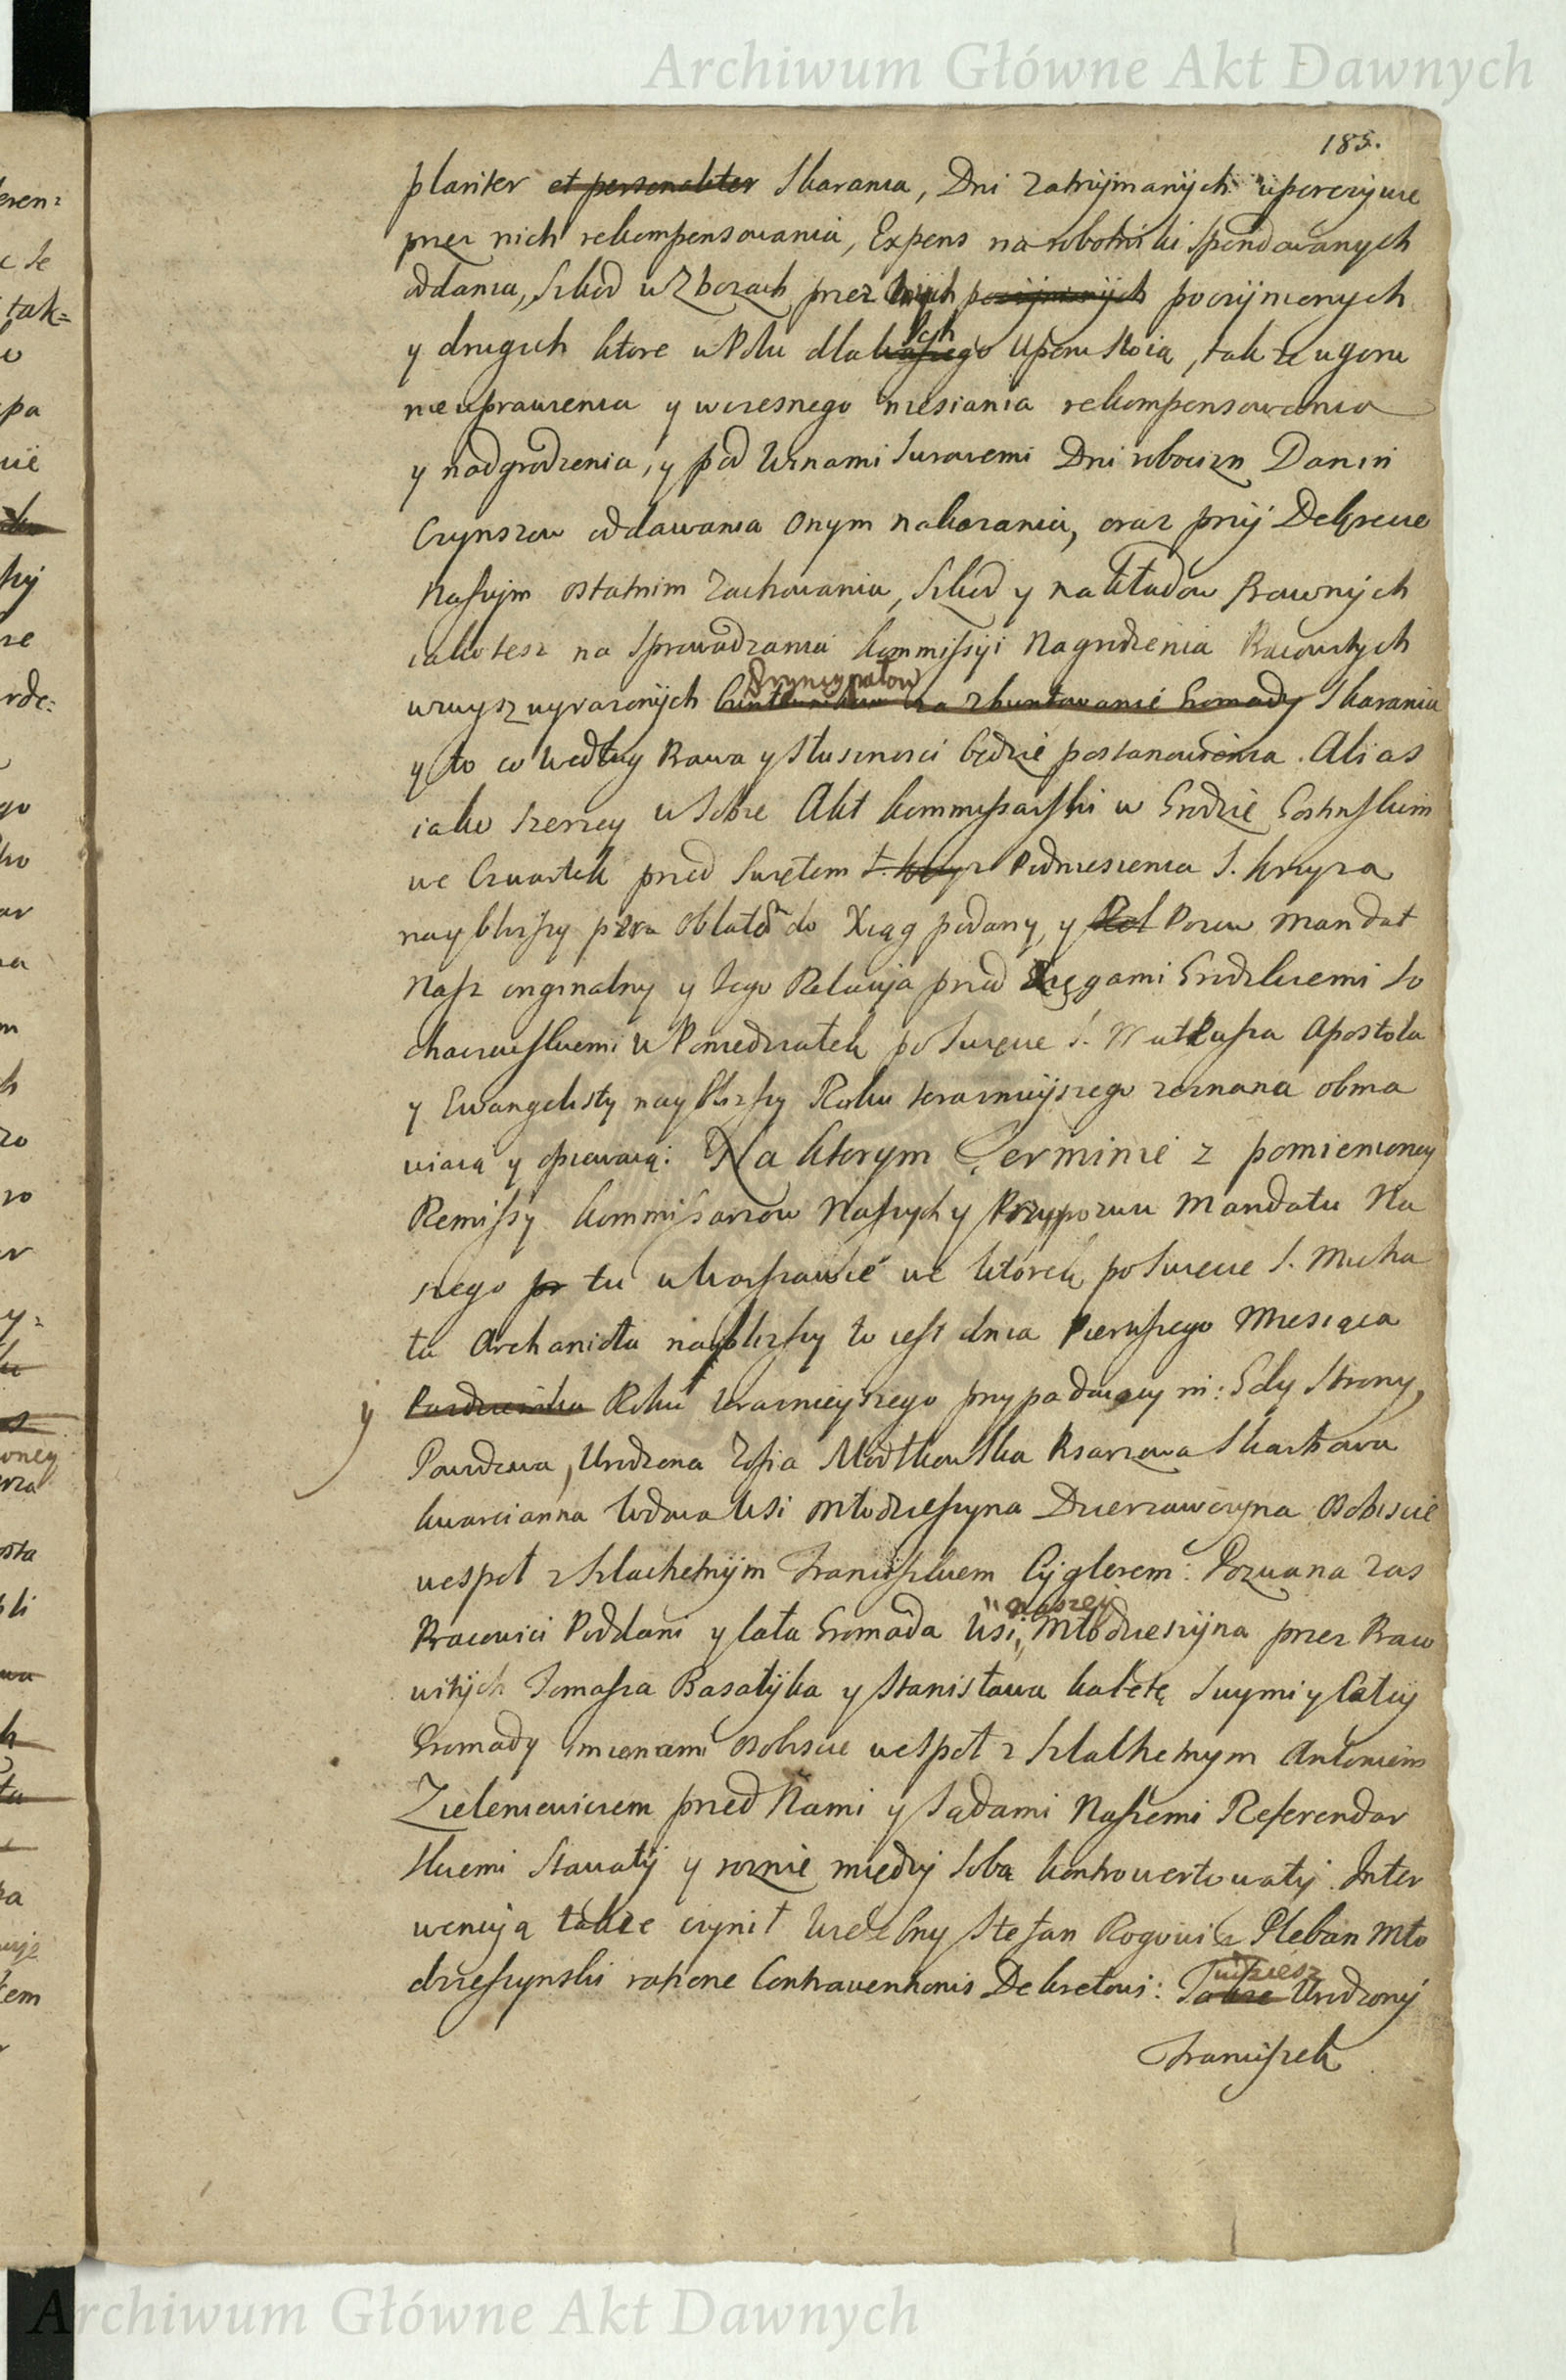 Archiwum Główne Akt Dawnych
185.
plariter et personaliter Skarania, Dni zatrzÿmanÿch uporczÿwie
przez nich rekompensowania, Expens na robotniki spendowanych
oddania, szkod w Zbozach przez poczÿnionych
y drugich ktore w Polu dla ich uporu stoią, tak ze ugoru
nieuprawienia y wczesnego niesiania rekompensowania
y nadgrodzenia, y pod Winami surowemi Dni roboczn Danin
Czynszow oddawania onym nakazania, oraz przÿ Dekrecie
Naszÿm ostatnim zachowania, szkod y nakładow Prawnÿch
iakotesz na sprowadzania kommissÿi Nagrodzenia Pracowitych
wzwysz wyrazonÿch Pryncypałow buntownikow za zbuntowanie Gromady Skarania
y to co według Prawa y słusznosci będzie postanowienia. Alias
iako szerzey w sobie Akt kommissarski w Grodzie Gostynskim
we Czwartek przed Swiętem Podniesienia S. Krzyza
naybliższy per Oblatã do Xiąg podany, y Pozew Mandat
Nasz originalny y Jego Relacÿa przed Xięgami Grodzkiemi So
chaczewskiemi w Poniedziałek po Swięcie S. Matteusza Apostoła
y Ewangelisty naybliższy Roku teraznieÿszego zeznana obma
wiaią y opiewaią: Na ktorym Terminie z pomienioney
Remissy kommissarzow Naszych y Przypozwu Mandatu Na
szego pr tu w Warszawie we Wtorek po Swięcie S. Micha
ła Archanioła naybliższy to iest dnia Pierwszego Miesiąca
y Pazdziernika Roku teraznieyszego przypadaiącym: Gdy Strony,
Powodowa, Urodzona Zofia Młodkowska Pisarzowa Skarbowa
kwarcianna Wdowa Wsi Młodzieszyna Dzierzawczyna osobiscie
wespoł z szlachetnÿm Franciszkiem Cÿglerem: Pozwana zas
Pracowici Poddani y cała Gromada Wsi naszey Młodzieszÿna przez Praco
witÿch Tomasza Basałÿka y Stanisława kaletę swymi y całeÿ
Gromady imieniemi osobiscie wespoł z szlachetnym Antonim
Zieleniewiczem przed Nami y Sądami Naszemi Referendar
skiemi stawałÿ y roznie międzÿ sobą kontrowertowałÿ. Inter
wencÿą także czynił Wielebny Stefan Rogowicz Pleban Mło
dzieszynski ratione Contraventionis Dekretowi: Tudziesz Także Urodzonÿ
Franciszek
Archiwum Główne Akt Dawnych